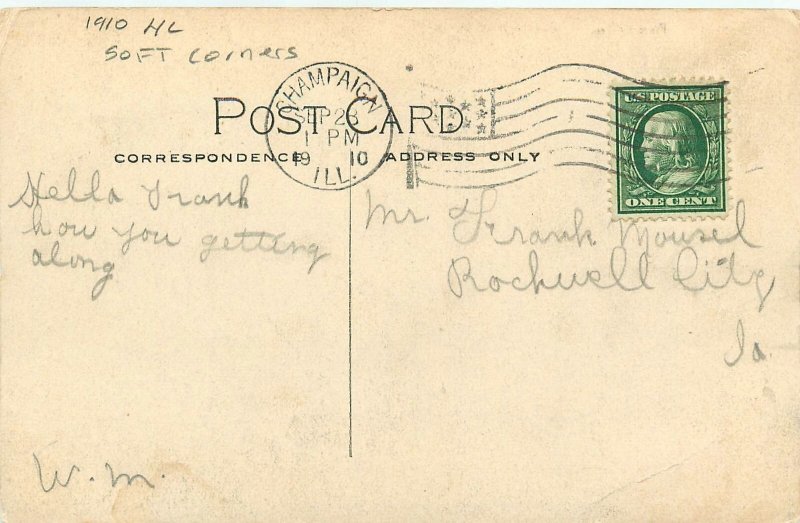 1910 HL
SOFT Corners
CHAMPAIGN
SEP 28
1 PM
19 10
ILL.
U.S. POSTAGE
ONE CENT
POST CARD
CORRESPONDENCE
ADDRESS ONLY
Hello Frank
how you getting
along
W. M.
Mr. Frank Mousel
Rockwell City
Ia.